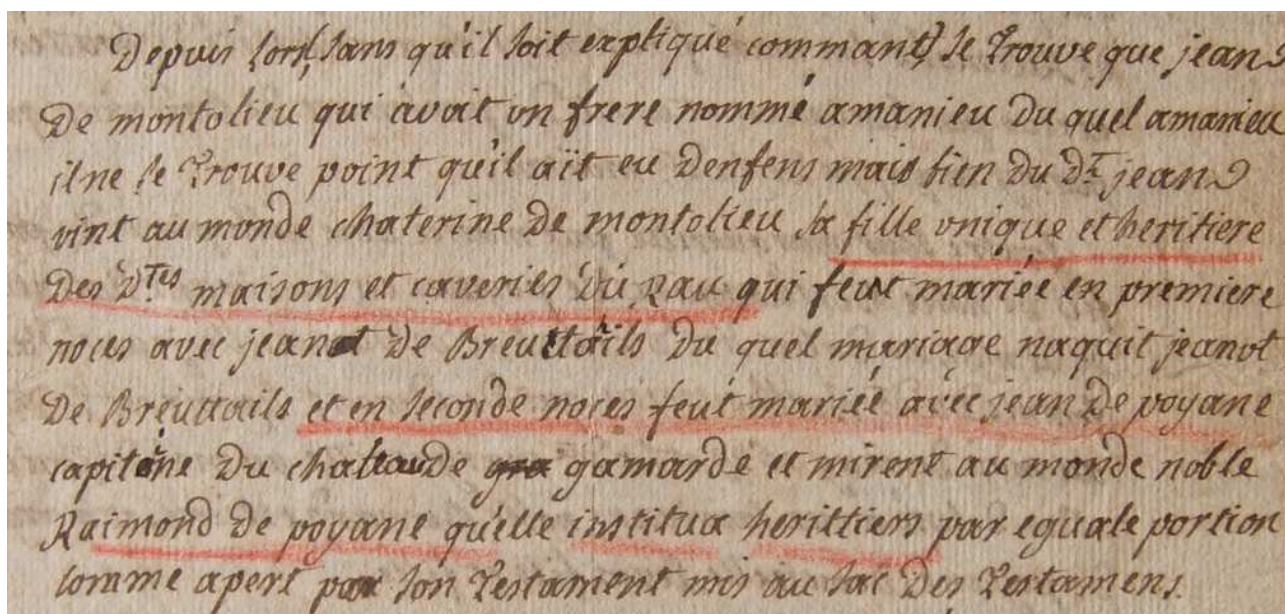 Depuis lors (sans qu'il soit expliqué commant) se trouve que jean
De montolieu qui avoit un frere nommé amanieu Du quel amanieu
il ne se trouve point qu'il aït eu Denfens mais bien du Dt. jean
vint au monde chaterine de montolieu sa fille unique et heritiere
Des Dtes maisons et caveries Du Rau qui feut mariée en premiere
noces avec jeanot De Breuttails Du quel mariage naquit jeanot
De Breuttails et en seconde noces feut mariée avec jean De poyane
capitäne Du chateau De gra gamarde et mirent au monde noble
Raimond De poyane qu'elle institua herittiers par eguale portion
comme apert par son Testament mis au sac Des Testamens.